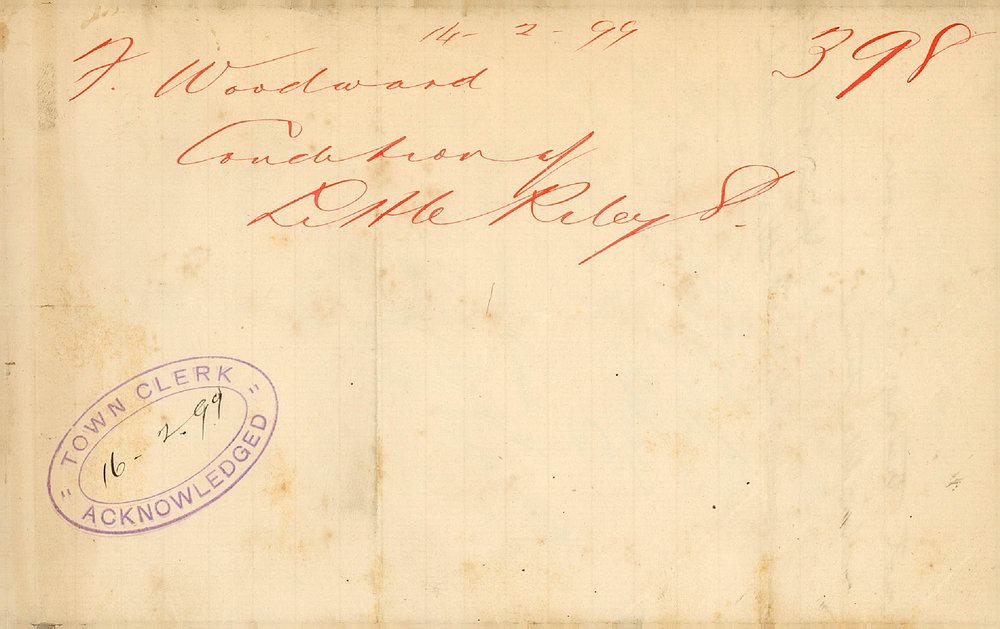 14-2-99
398
F. Woodward
Condition of
Little Riley St.
TOWN CLERK
16-2.99
ACKNOWLEDGED